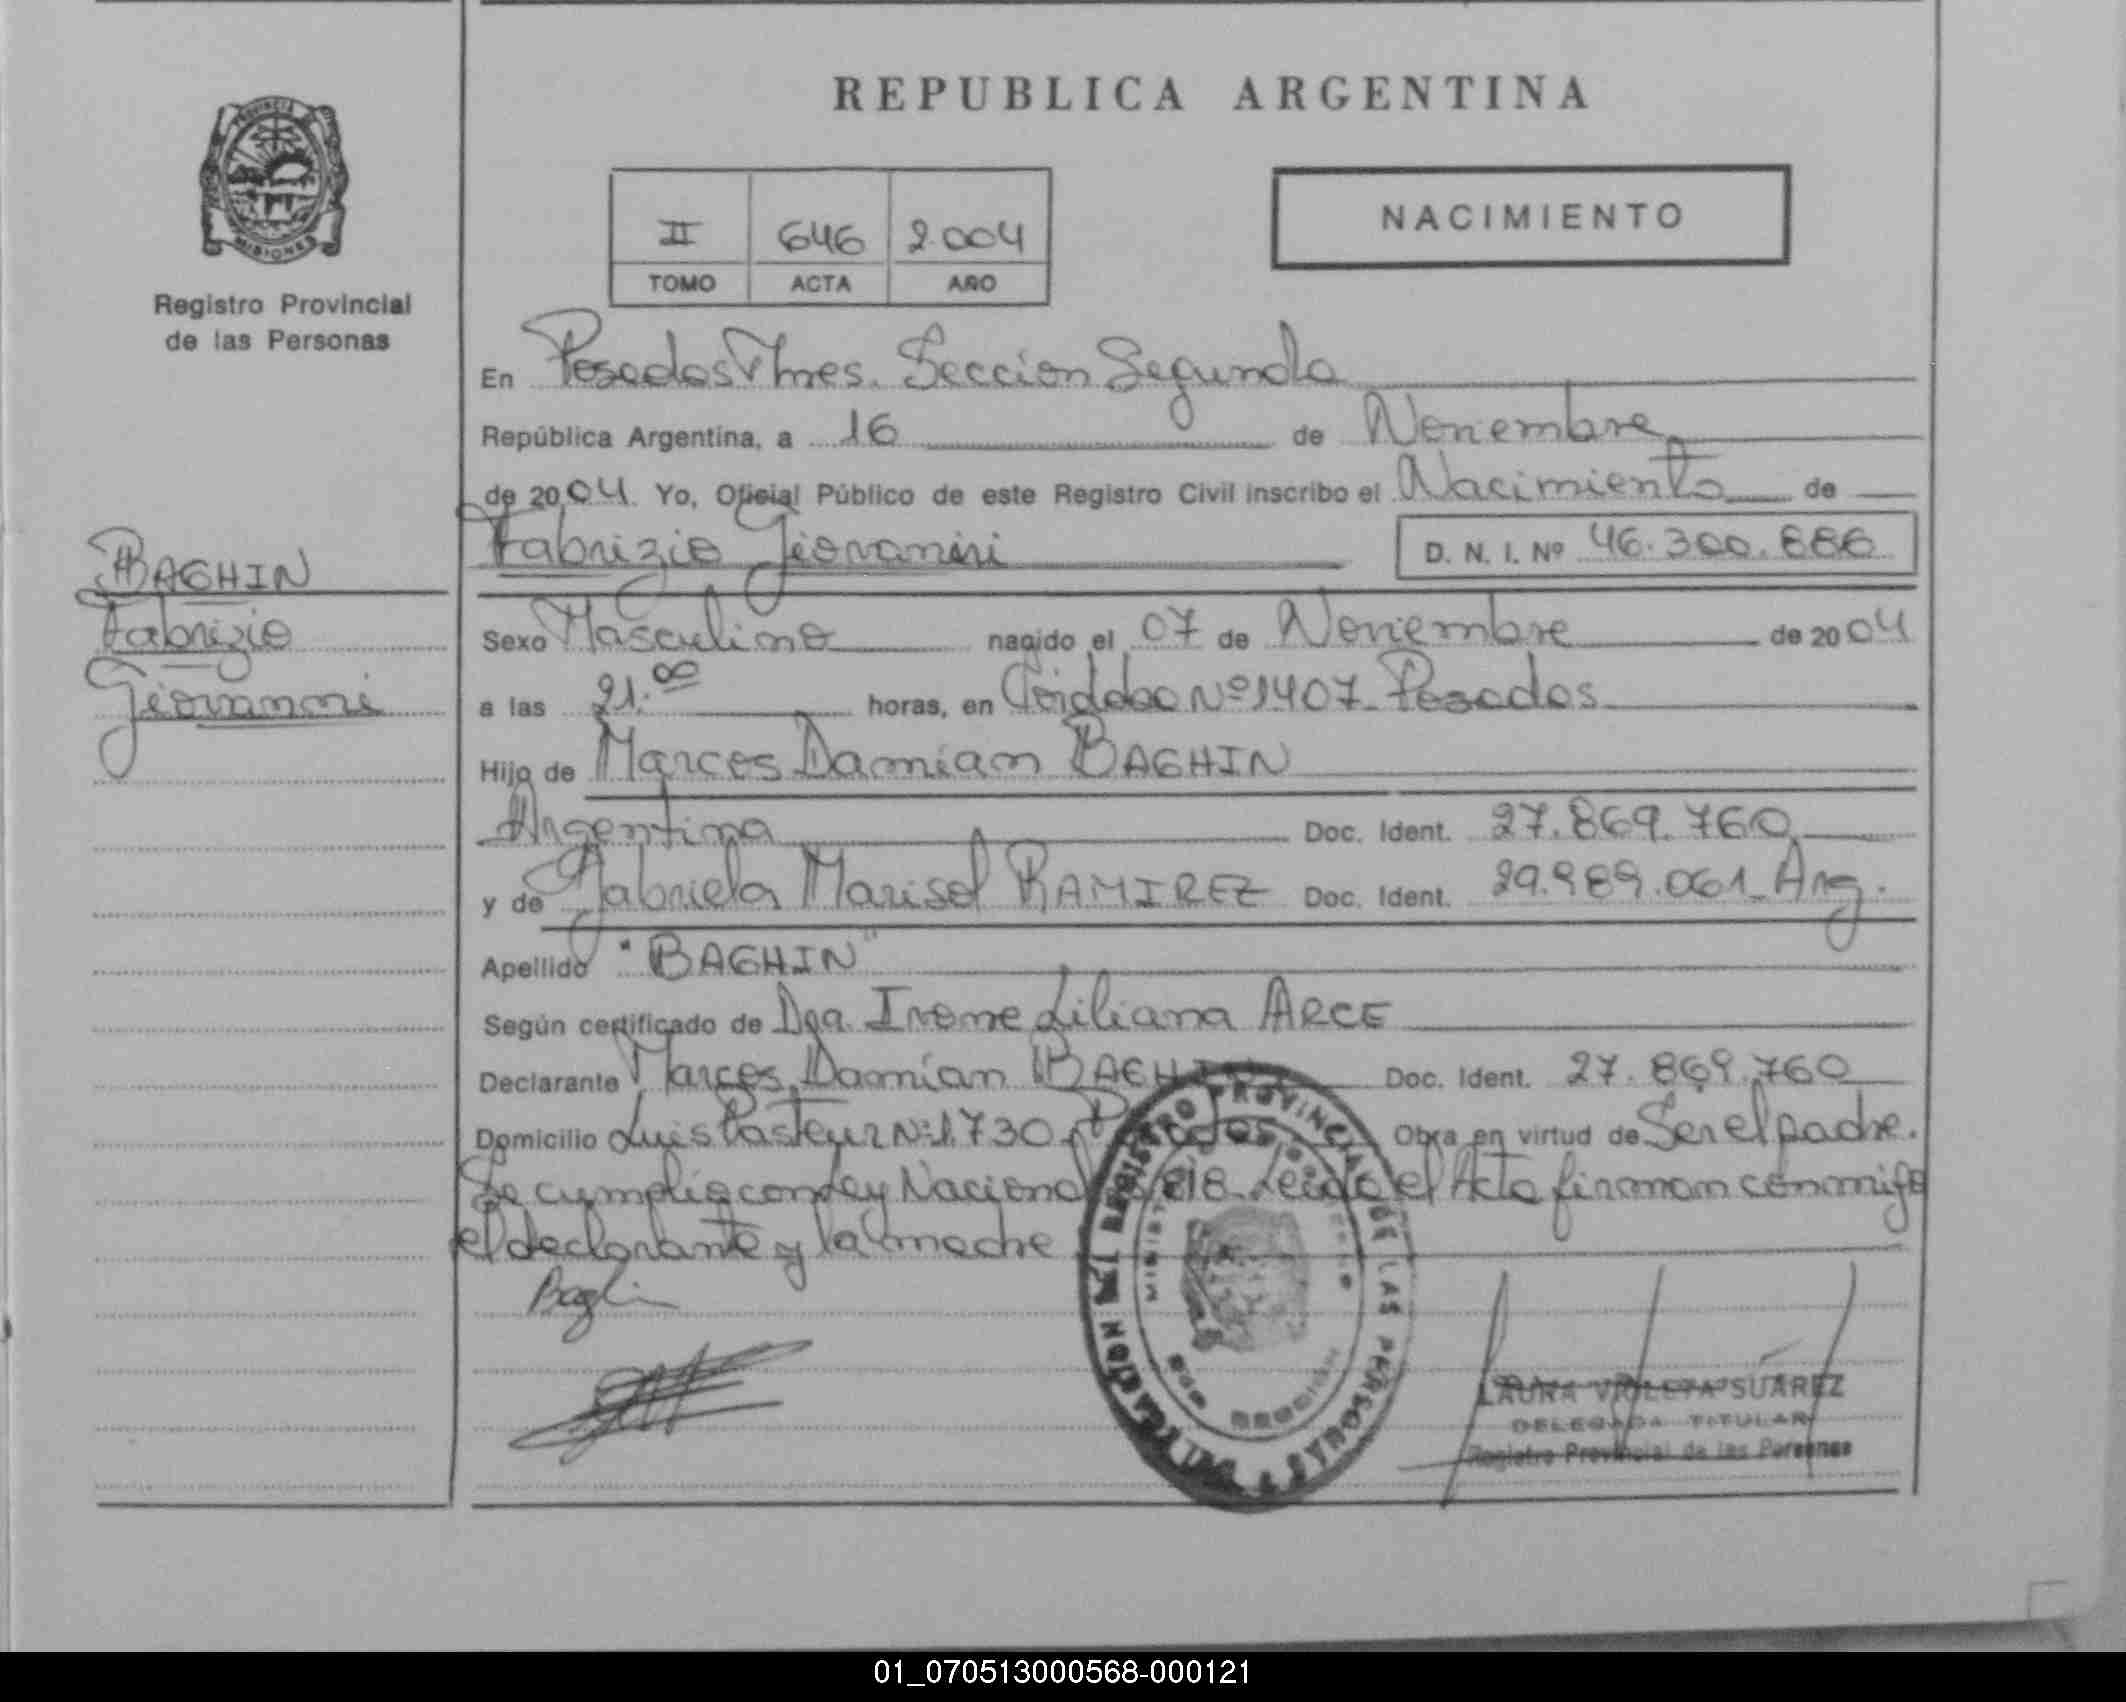 REPUBLICA ARGENTINA
PROVINCIA DE
MISIONES
Registro Provincial
de las Personas
II 646 2.004
TOMO ACTA AÑO
NACIMIENTO
En Posadas Mnes. Seccion Segunda
República Argentina, a 16 de Noviembre
de 2004. Yo, Oficial Público de este Registro Civil inscribo el Nacimiento de
Fabrizio Giovanni D. N. I. Nº 46.300.886
BAGHIN
Fabrizio
Giovanni
Sexo Masculino nacido el 07 de Noviembre de 2004
a las 21.00 horas, en Córdoba Nº 1407 Posadas
Hijo de Marcos Damián BAGHIN
Argentina Doc. Ident. 27.869.760
y de Gabriela Marisol RAMIREZ Doc. Ident. 29.989.061 Arg.
Apellido "BAGHIN"
Según certificado de Dra. Ivone Liliana ARCE
Declarante Marcos Damián BAGHIN Doc. Ident. 27.869.760
Domicilio Luis Pasteur Nº 1730 Posadas Obra en virtud de Ser el padre.
Se cumplió con Ley Nacional Leida el Acta firman conmigo
el declarante y la madre
Baghin
REGISTRO PROVINCIAL DE LAS PERSONAS
LAURA VIOLETA SUAREZ
DELEGADA TITULAR
Registro Provincial de las Personas
01_070513000568-000121